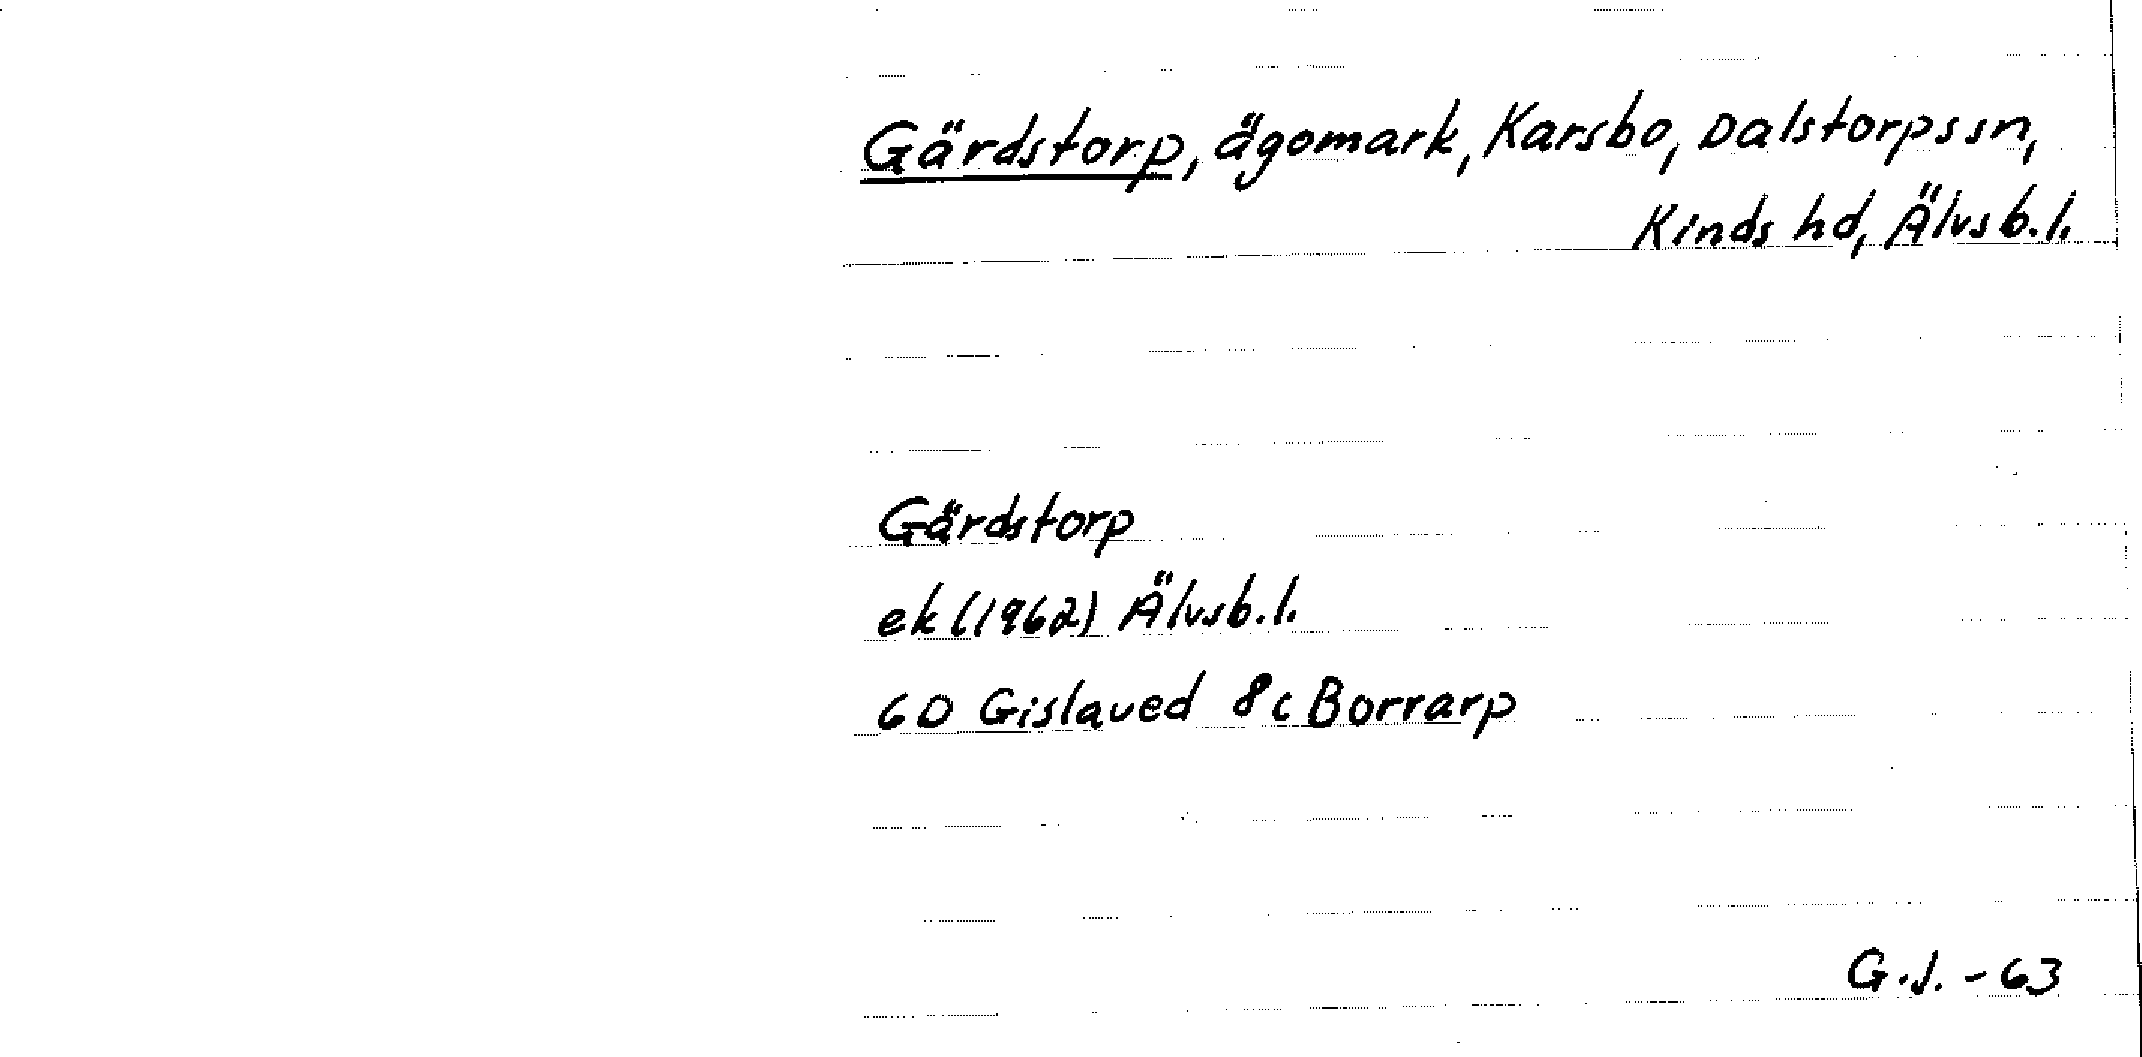 Gärdstorp, ägomark, Karsbo, Dalstorps sn,
Kinds hd, Älvsb. l.
Gärdstorp
ek (1962) Älvsb. l.
6D Gislaved 8c Borrarp
G.J. - 63